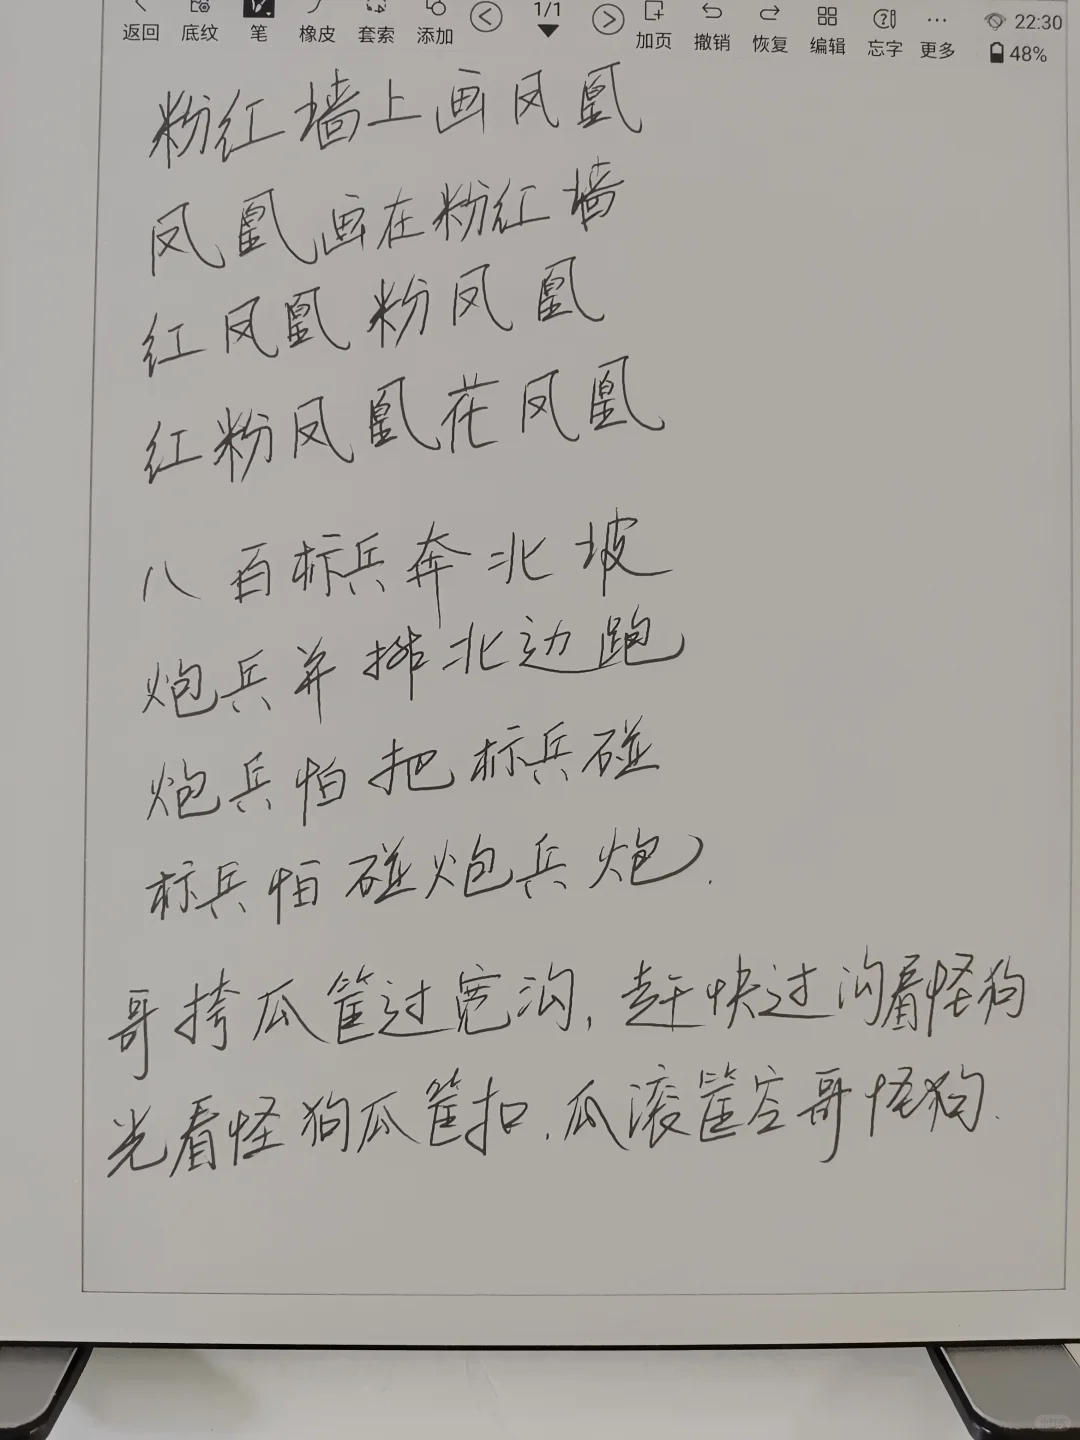 返回 底纹 笔 橡皮 套索 添加 1/1 加页 撤销 恢复 编辑 忘字 更多 22:30
48%
粉红墙上画凤凰
凤凰画在粉红墙
红凤凰粉凤凰
红粉凤凰花凤凰
八百标兵奔北坡
炮兵并排北边跑
炮兵怕把标兵碰
标兵怕碰炮兵炮.
哥挎瓜筐过宽沟,赶快过沟看怪狗
光看怪狗瓜筐扣.瓜滚筐空哥怪狗.